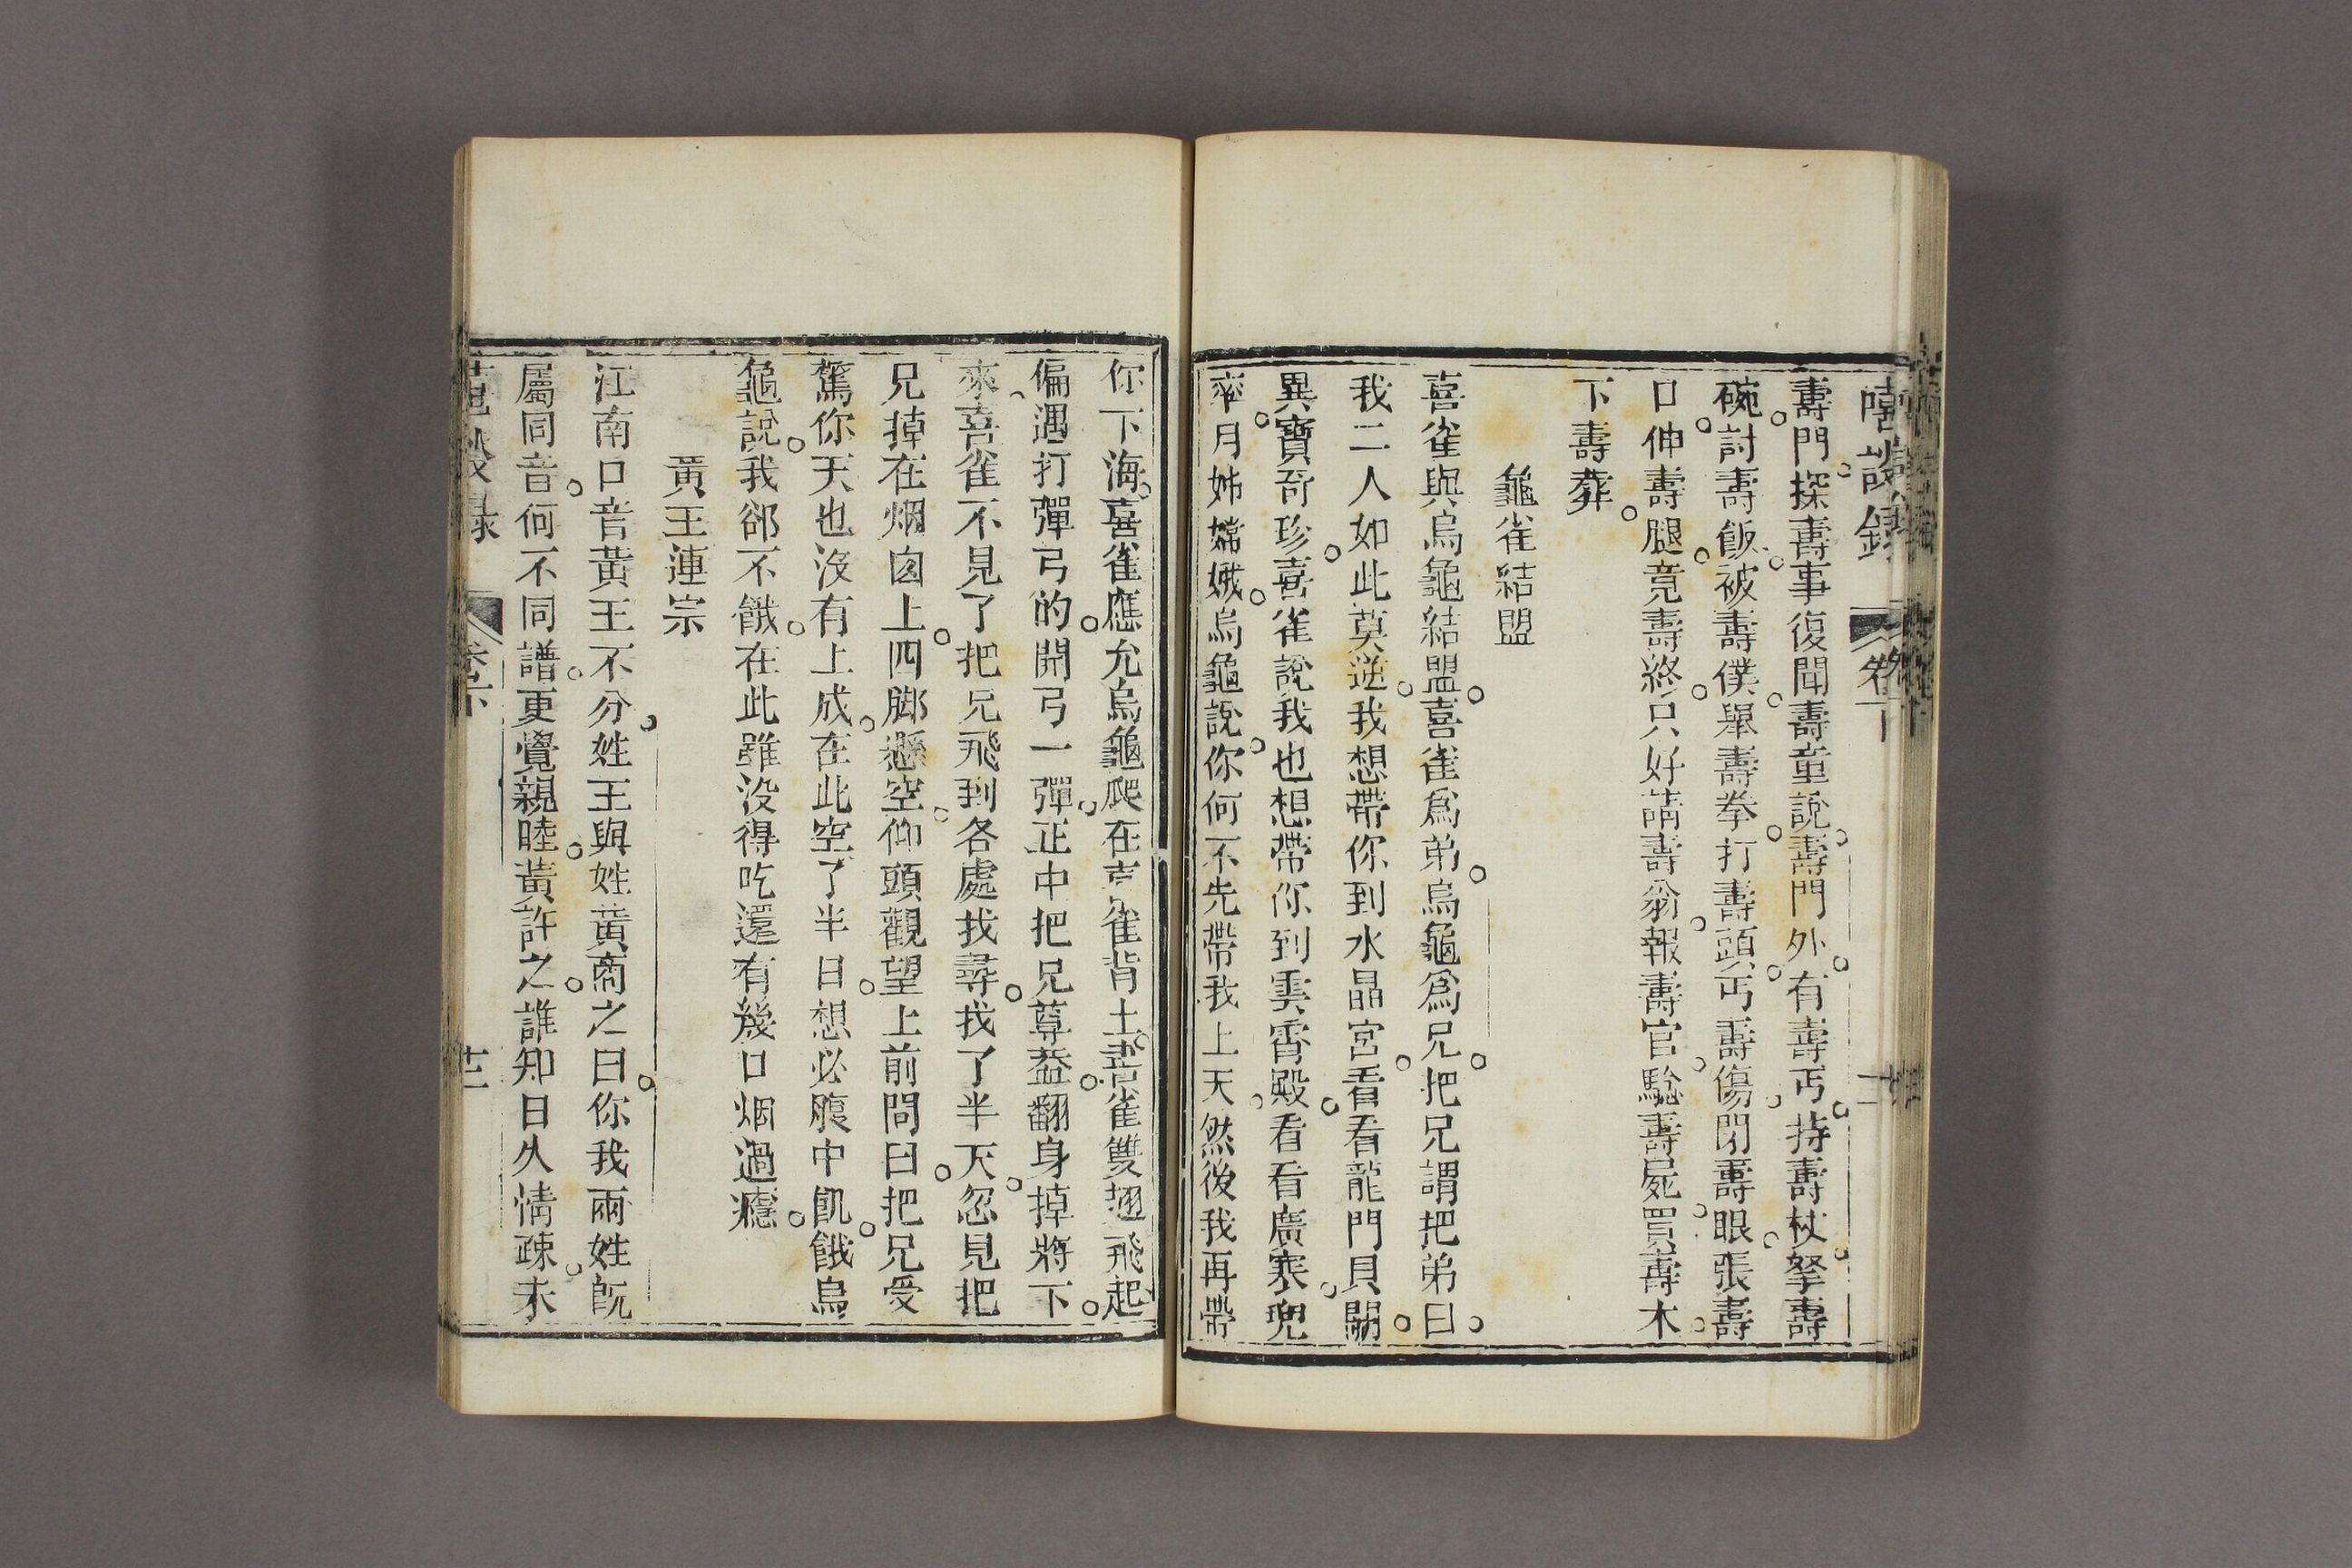 嘻談錄 卷下
壽門探壽事復聞壽童說壽門外有壽丐持壽杖拏壽
碗討壽飯被壽僕舉壽拳打壽頭丐壽傷閉壽眼張壽
口伸壽腿竟壽終只好請壽翁報壽官驗壽屍買壽木
下壽葬
龜雀結盟
喜雀與烏龜結盟喜雀爲弟烏龜爲兄把兄謂把弟曰
我二人如此莫逆我想帶你到水晶宮看看龍門貝闕
異寶奇珍喜雀說我也想帶你到雲霄殿看看廣寒兜
率月姊嫦娥烏龜說你何不先帶我上天然後我再帶
你下海喜雀應允烏龜爬在喜雀背上喜雀雙翅飛起
偏遇打彈弓的開弓一彈正中把兄尊葢翻身掉將下
來喜雀不見了把兄飛到各處找尋找了半天忽見把
兄掉在烟囪上四脚懸空仰頭觀望上前問曰把兄受
驚你天也沒有上成在此空了半日想必腹中飢餓烏
龜說我郤不餓在此雖沒得吃還有幾口烟過癮
黃王連宗
江南口音黃王不分姓王與姓黃商之曰你我兩姓旣
屬同音何不同譜更覺親睦黃許之誰知日久情疎未
卷下